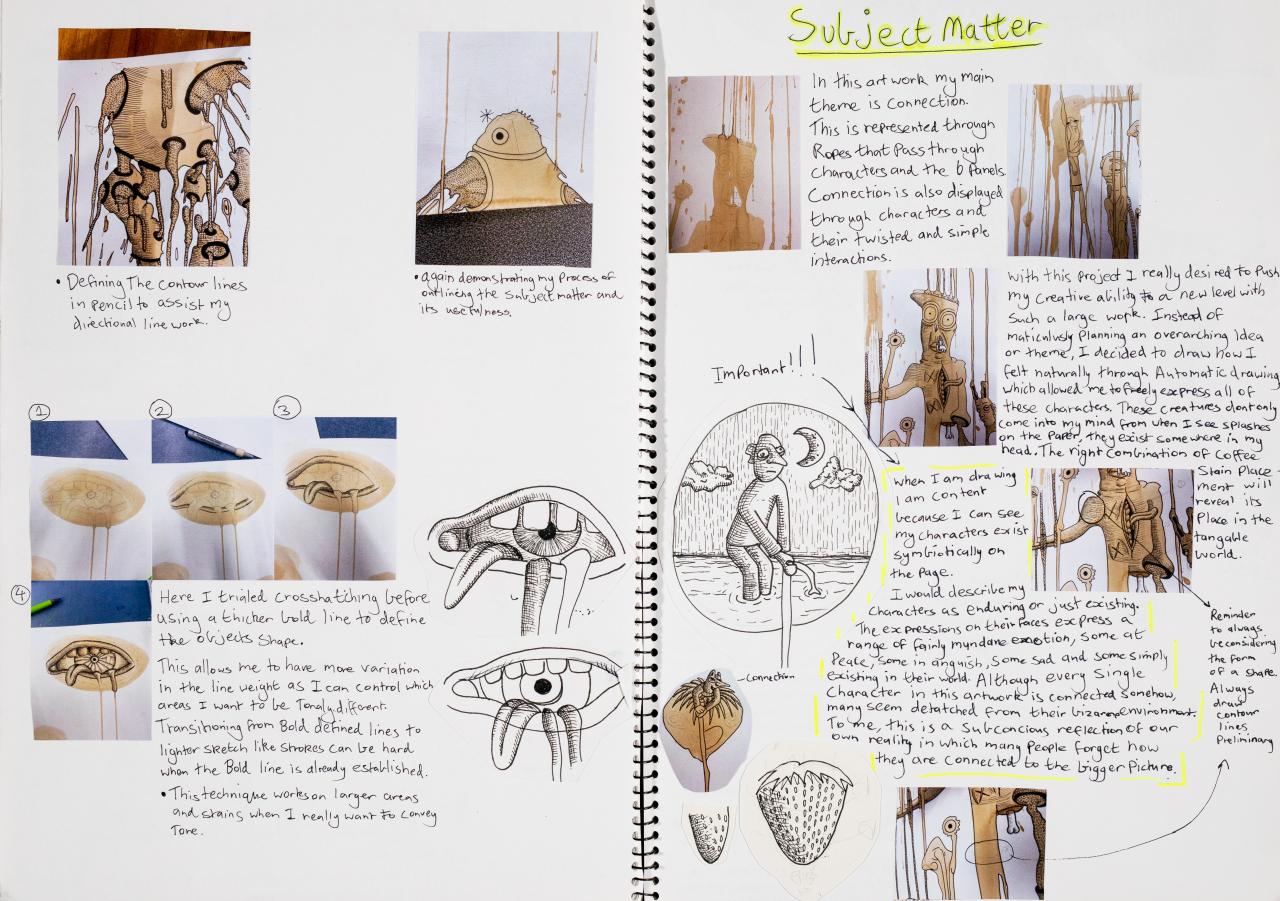 • Defining The contour lines
in pencil to assist my
directional line work.
• again demonstrating my process of
outlining the subject matter and
its usefulness.
1
2
3
4
Here I trialed crosshatching before
using a thicker bold line to define
the objects shape.
This allows me to have more variation
in the line weight as I can control which
areas I want to be Tonaly different.
Transitioning from Bold defined lines to
lighter sketch like strokes can be hard
when the Bold line is already established.
• This technique works on larger areas
and stains when I really want to convey
Tone.
Subject Matter
In this art work my main
theme is connection.
This is represented through
Ropes that pass through
characters and the 6 panels.
Connection is also displayed
through characters and
their twisted and simple
interactions.
with this project I really desired to push
my creative ability to a new level with
such a large work. Instead of
maticulusly planning an overarching idea
or theme, I decided to draw how I
felt naturally through Automatic drawing
which allowed me to freely express all of
these characters. These creatures dont only
come into my mind from when I see splashes
on the paper, they exist somewhere in my
head. The right combination of coffee
Stain Place-
ment will
reveal its
Place in the
tangable
world.
Important!!!
when I am drawing
I am content
because I can see
my characters exist
symbiotically on
the page.
I would describe my
characters as enduring or just existing.
The expressions on their faces express a
range of fairly mundane emotion, some at
Peace, some in anguish, some sad and some simply
existing in their world. Although every single
character in this artwork is connected somehow,
many seem detatched from their bizarre environment.
To me, this is a subconcious reflection of our
own reality in which many people forget how
they are connected to the bigger Picture.
Connection
Reminder
to always
be considering
the form
of a shape.
Always
draw
contour
lines
Preliminary